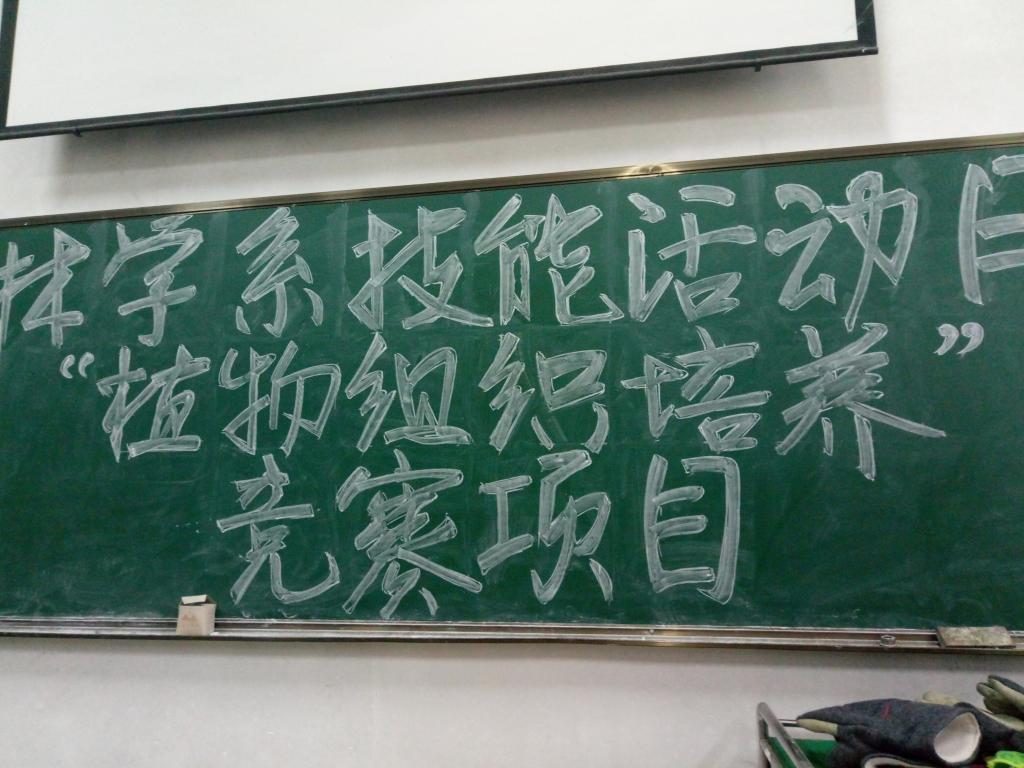 林学系技能活动月
“植物组织培养”
竞赛项目